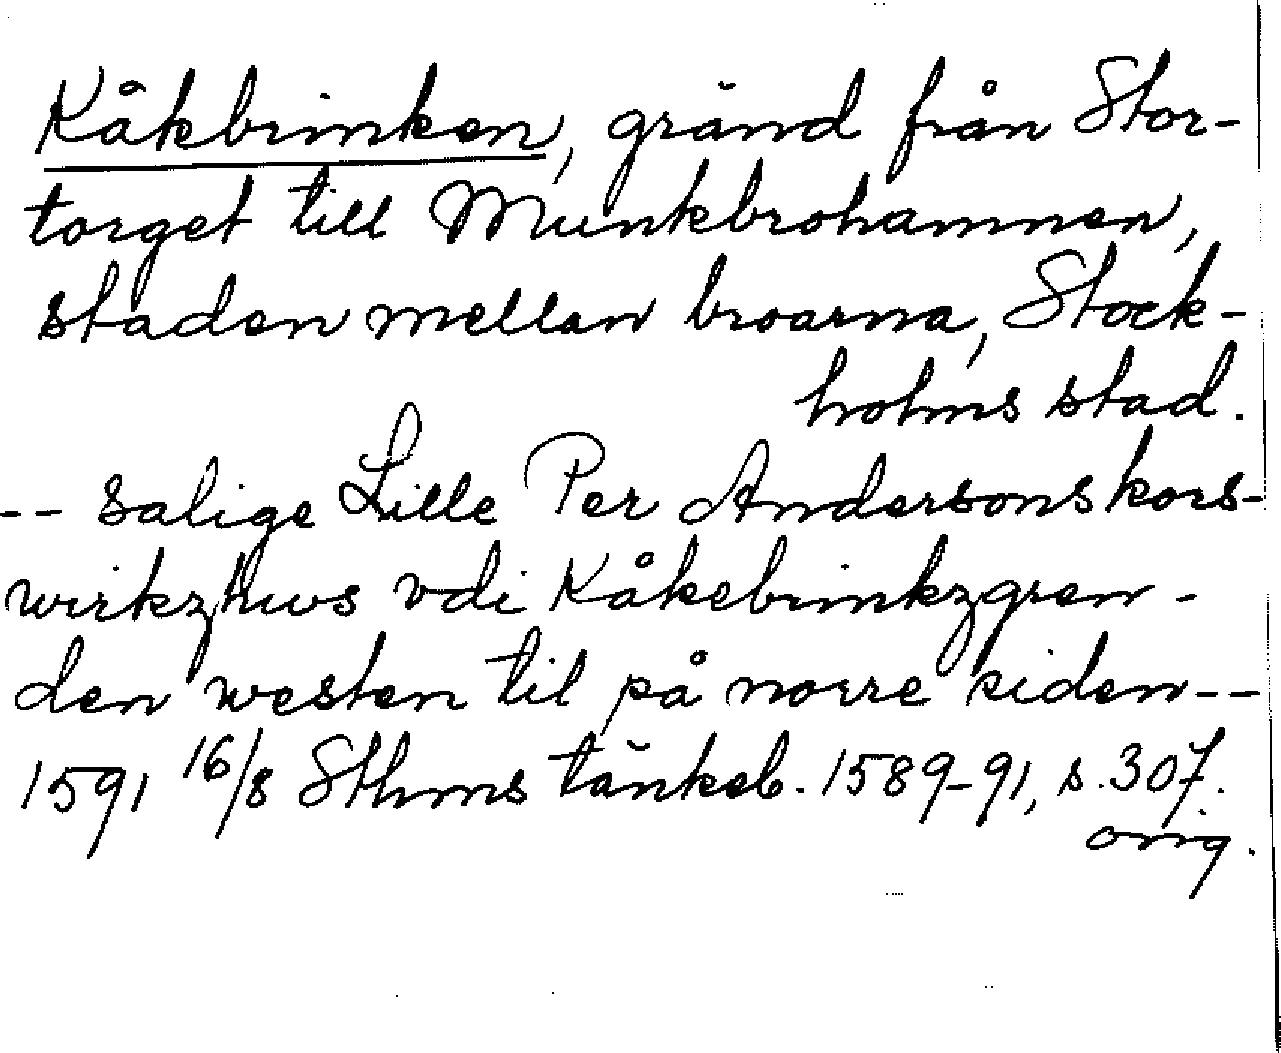 Kåkbrinken, gränd från Stor-
torget till Munkbrohamnen,
staden mellan broarna, Stock-
holms stad.
-- salige Lille Per Andersons kors-
wirkzhws vdi Kåkebrinkzgren-
den westen til på norre siden--
1591 16/8 Sthms tänkeb. 1589-91, s. 307.
orig.